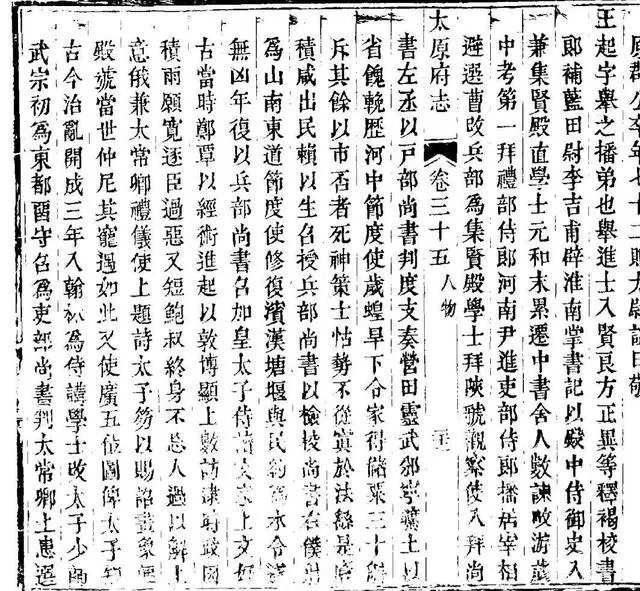 原郡公卒年七十二贈太尉諡曰敬
王起字舉之播弟也舉進士入賢良方正異等釋褐校書
郎補藍田尉李吉甫辟淮南掌書記以殿中侍御史入
兼集賢殿直學士元和末累遷中書舍人數諫畋游
中考第一拜禮部侍郎河南尹進吏部侍郎播居宰相
避選曹改兵部為集賢殿學士拜陝虢觀察使入拜尚
太原府志 卷三十五 人物
書左丞以戶部尚書判度支奏營田靈武邠寧歲土以
省餽輓歷河中節度使歲蝗旱下令家得儲粟三十斛
斥其餘以市否者死神策士怙勢不從寘於法繇是廥
積咸出民賴以生召授兵部尚書以檢校尚書右僕射
為山南東道節度使修復濱漢塘堰與民約為水令遂
無凶年復以兵部尚書召加皇太子侍讀 上文好
古當時鄭覃以經術進起以敦博顯上數訪逮時政因
積雨願寬逐臣過惡又短鮑叔終身不忘人過以解上
意俄兼太常卿禮儀使上題詩太子笏以賜詔畫象便
殿號當世仲尼其寵遇如此又使廣五位圖俾太子知
古今治亂開成三年入翰林為侍講學士改太子少師
武宗初為東都留守召為吏部尚書判太常卿上患選